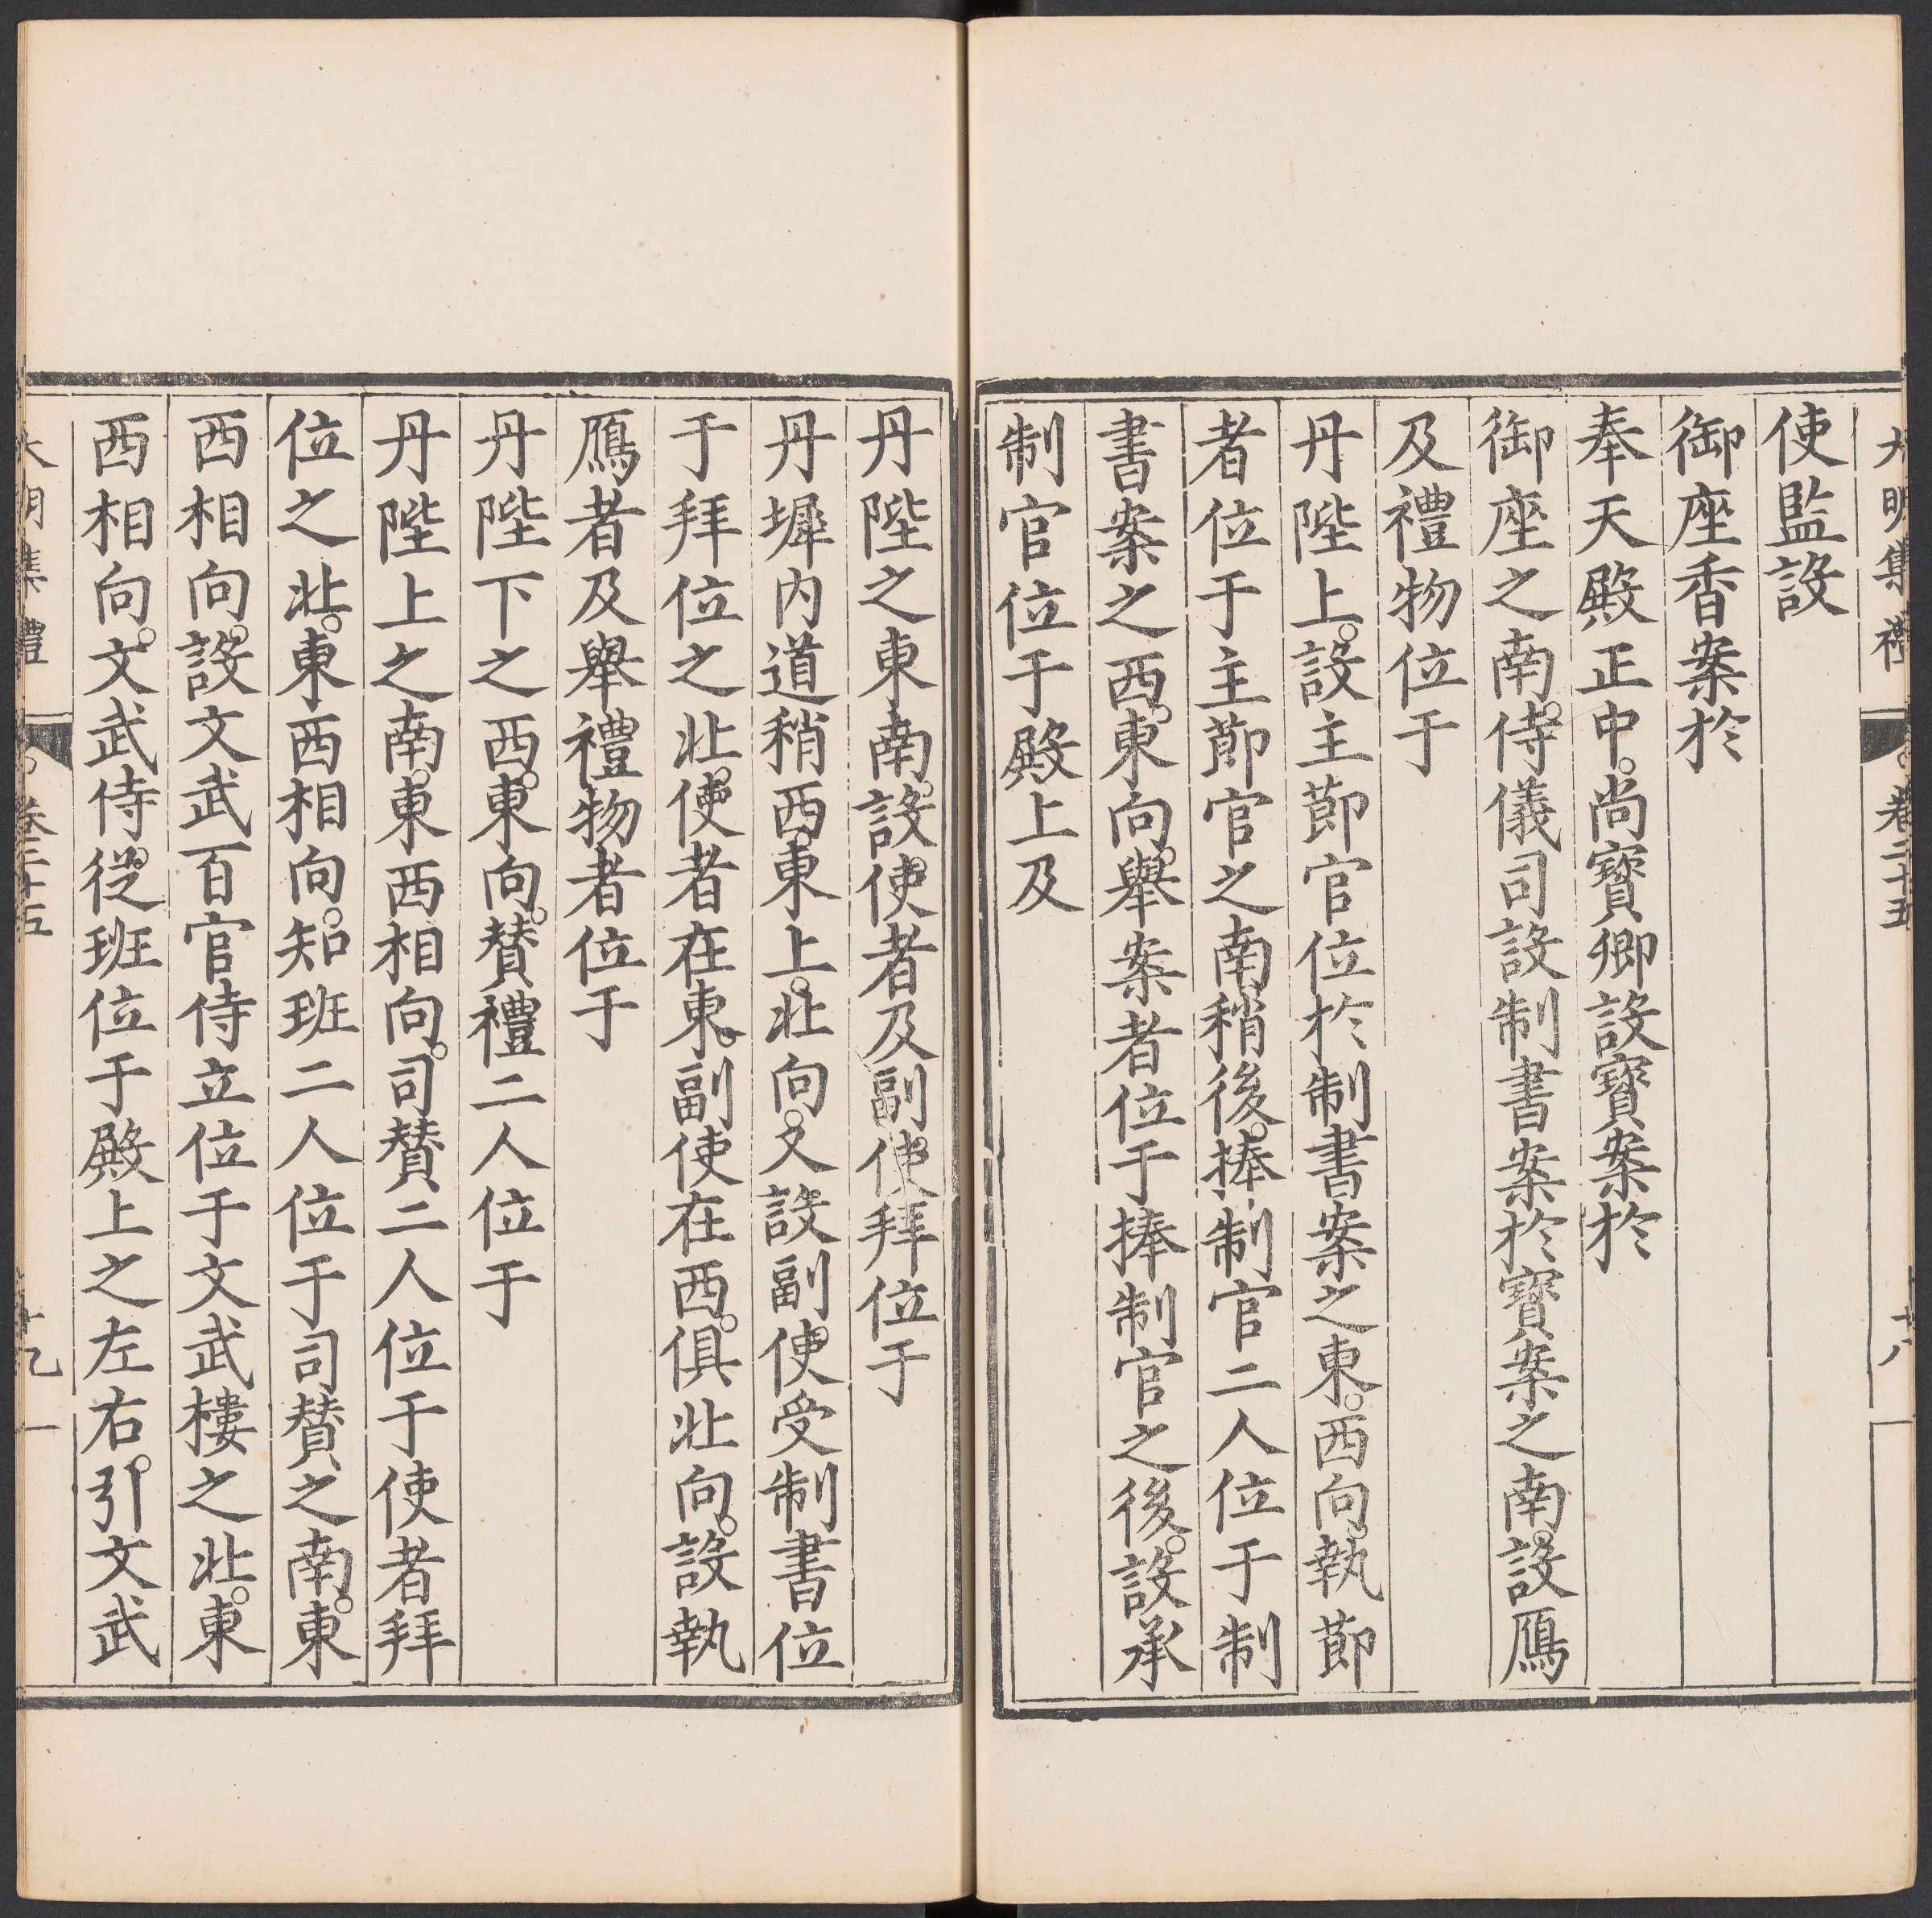 大明集禮 卷二十五 十八
使監設
御座香案於
奉天殿正中。尚寶卿設寶案於
御座之南。侍儀司設制書案於寶案之南。設鴈
及禮物位于
丹陛上。設主節官位於制書案之東。西向。執節
者位于主節官之南稍後。捧制官二人位于制
書案之西。東向。舉案者位于捧制官之後。設承
制官位于殿上及
丹陛之東南。設使者及副使拜位于
丹墀內道稍西。東上。北向。又設副使受制書位
于拜位之北。使者在東。副使在西。俱北向。設執
鴈者及舉禮物者位于
丹陛下之西。東向。贊禮二人位于
丹陛上之南。東西相向。司贊二人位于使者拜
位之北。東西相向。知班二人位于司贊之南。東
西相向。設文武百官侍立位于文武樓之北。東
西相向。文武侍從班位于殿上之左右。引文武
大明集禮 卷二十五 十九